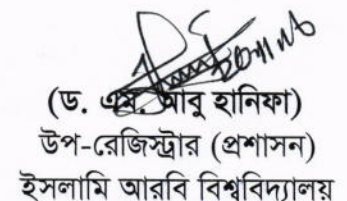 (ড. এম. আবু হানিফা)
উপ-রেজিস্ট্রার (প্রশাসন)
ইসলামি আরবি বিশ্ববিদ্যালয়